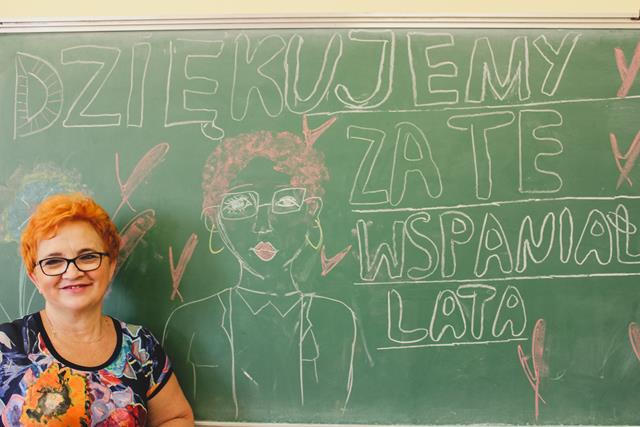 DZIĘKUJEMY
ZA TE
WSPANIAŁ
LATA